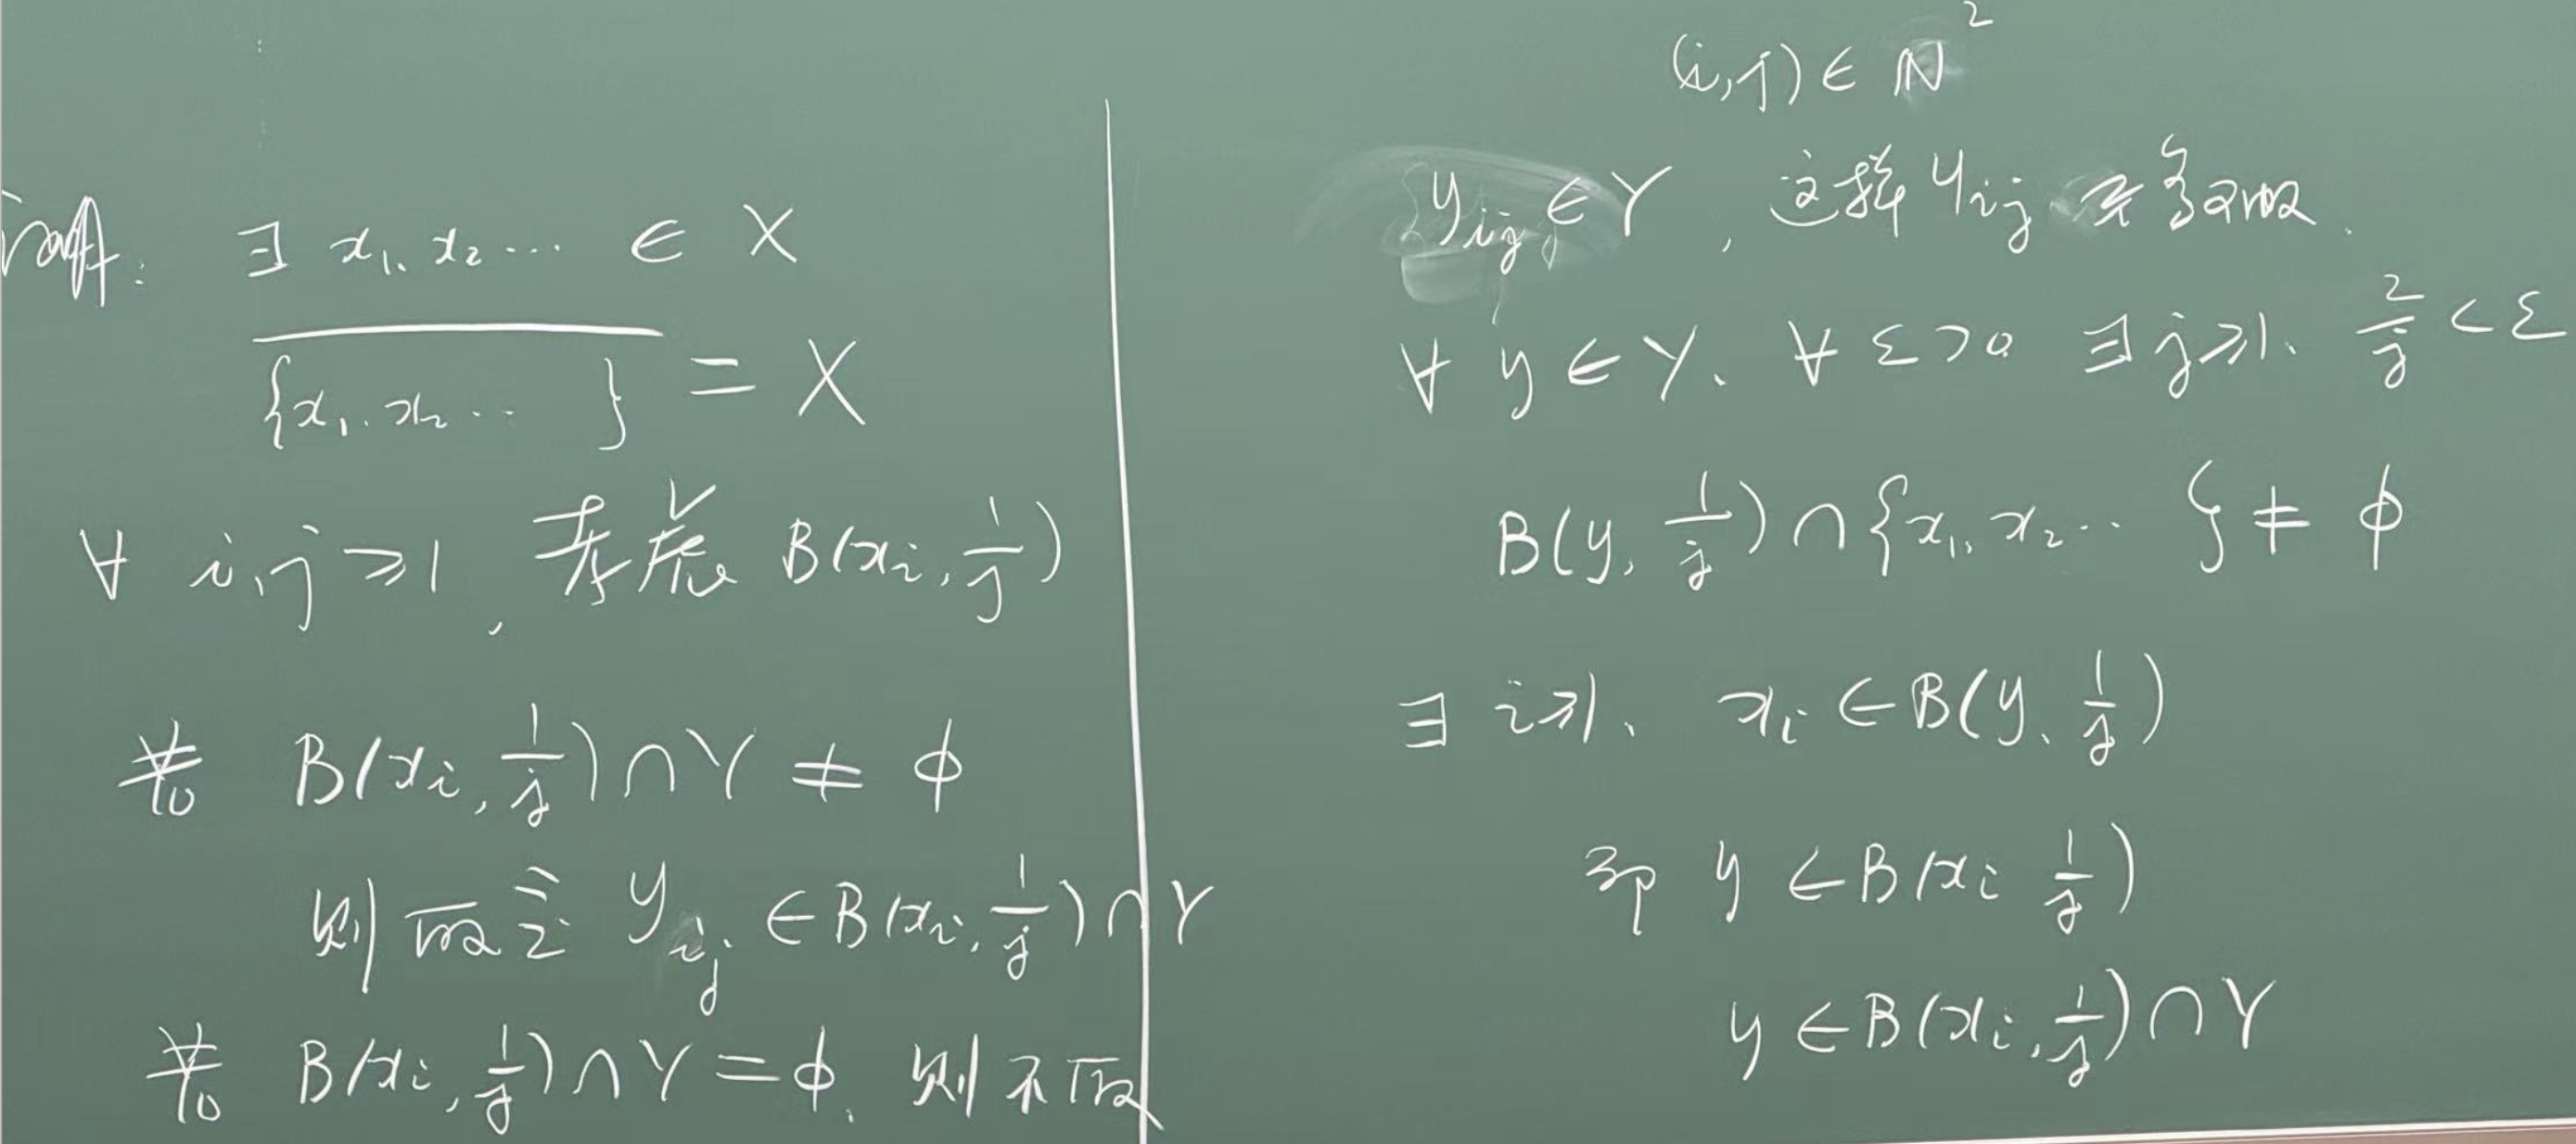 证明: ∃ x₁, x₂ ⋯ ∈ X
\overline{{x₁, x₂ ⋯ }} = X
∀ i, j ⩾ 1, 考虑 B(xᵢ, 1/j)
若 B(xᵢ, 1/j) ∩ Y ≠ ϕ
则取定 y_{ij} ∈ B(xᵢ, 1/j) ∩ Y
若 B(xᵢ, 1/j) ∩ Y = ϕ, 则不取
(i, j) ∈ ℕ²
y_{ij} ∈ Y, 这样 y_{ij} 至多可取.
∀ y ∈ Y, ∀ ε > 0 ∃ j ⩾ 1, 2/j < ε
B(y, 1/j) ∩ {x₁, x₂ ⋯ } ≠ ϕ
∃ i ⩾ 1, xᵢ ∈ B(y, 1/j)
即 y ∈ B(xᵢ 1/j)
y ∈ B(xᵢ, 1/j) ∩ Y